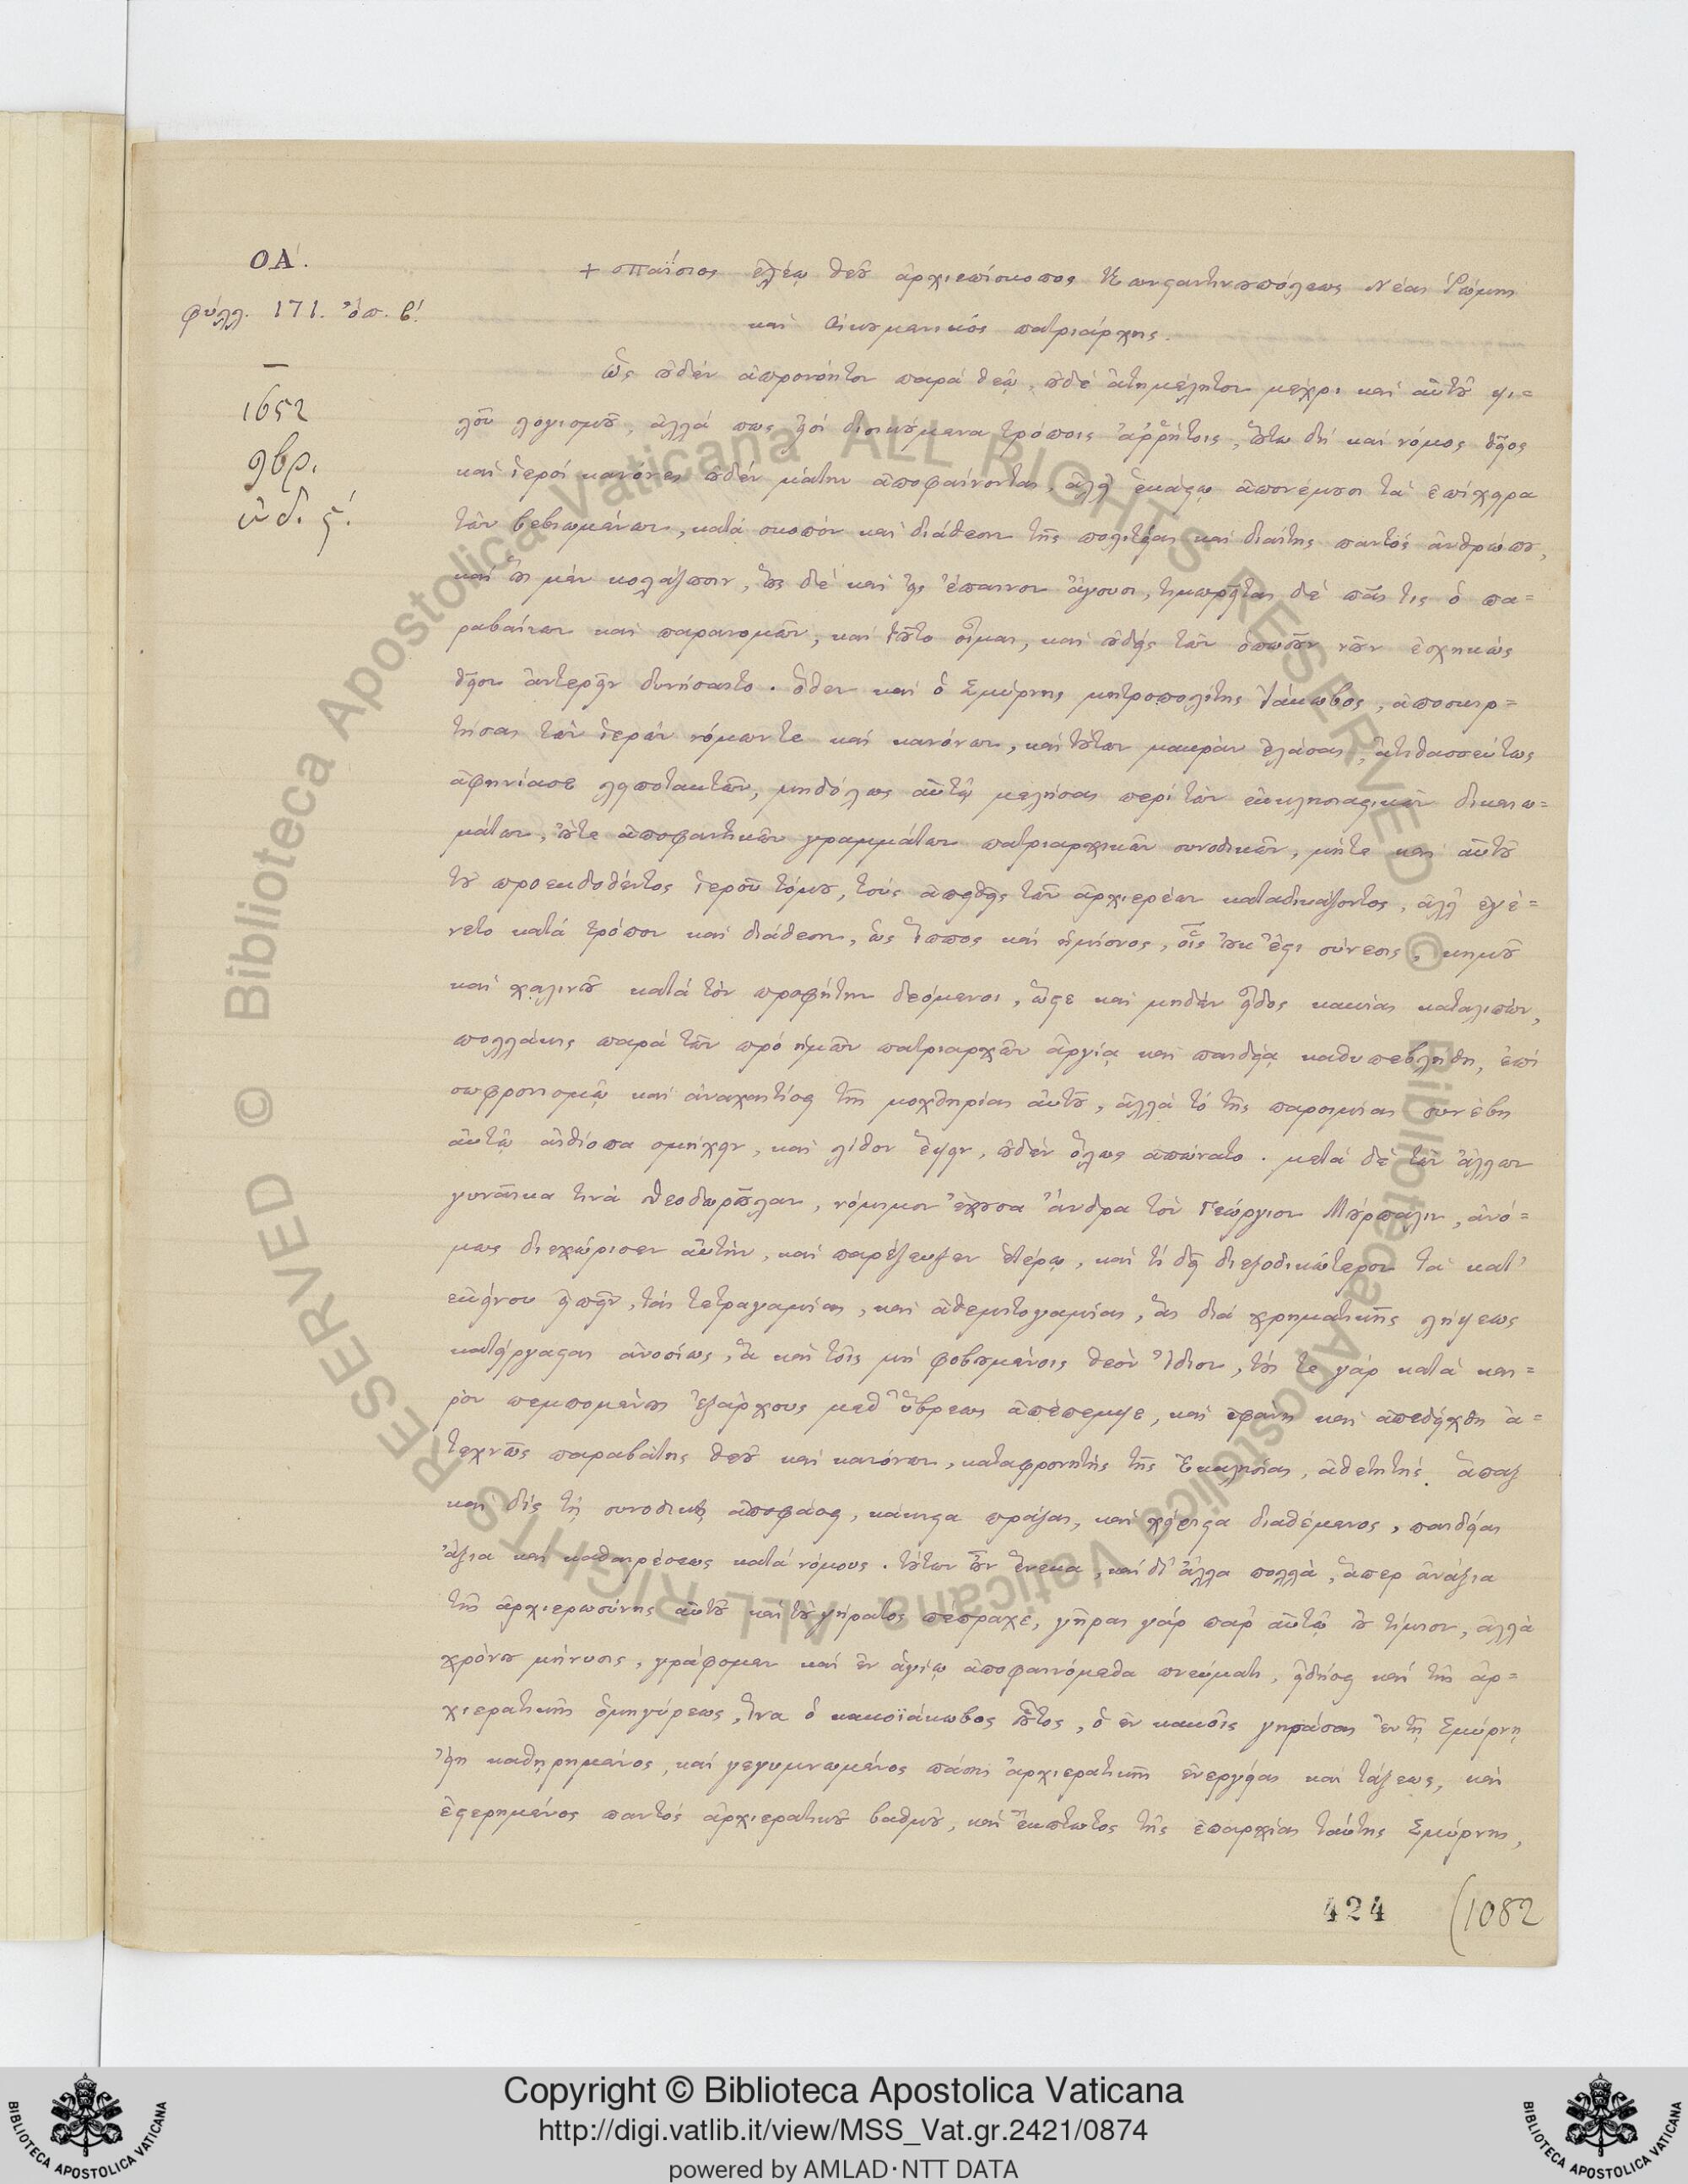 ΟΑ΄.
φύλλ. 171. ὄπ. β΄.
1652
9βρ.
ἰνδ. ς΄.
+ ὁ Παΐσιος ἐλέῳ θεοῦ ἀρχιεπίσκοπος Κωνσταντινουπόλεως Νέας Ῥώμης
καὶ οἰκουμενικός πατριάρχης.
Ὡς οὐδέν ἀπρονόητον παρά θεῷ, οὐδέ ἀτημέλητον μέχρι καί αὐτοῦ ψι=
λοῦ λογισμοῦ, ἀλλά πως διοικούμενα τρόποις ἀῤῥήτοις, οὕτω δή καί νόμος θεῖος
καί ἱεροί κανόνες οὐδέν μάτην ἀποφαίνονται, ἀλλ' ἑκάστῳ ἀπονέμουσι τά ἐπίχειρα
τῶν βεβιωμένων, κατά σκοπόν καί διάθεσιν τῆς πολιτείας καί διαίτης παντός ἀνθρώπου,
καί οὓς μέν κολάζουσιν, οὓς δέ καί εἰς ἔπαινον ἄγουσι, τιμωρεῖται δέ πᾶς τις ὁ πα=
ραβαίνων καί παρανομῶν, καί τοῦτο οἶμαι, καί οὐδείς τῶν ὁπωσοῦν νοῦν ἐσχηκώς
θεῖον ἀντερεῖν δυνήσαιτο. ὅθεν καί ὁ Σμύρνης μητροπολίτης Ἰάκωβος, ἀποσκιρ=
τήσας τῶν ἱερῶν νόμων τε καί κανόνων, καί τούτων μακράν ἐλάσας, ἀτιθασσεύτως
ἀφηνίασε λειποτακτῶν, μηδόλως αὐτῷ μελήσας περί τῶν ἐκκλησιαστικῶν δικαιω=
μάτων, οὔτε ἀποφαντικῶν γραμμάτων πατριαρχικῶν συνοδικῶν, μήτε καί αὐτοῦ
τοῦ προεκδοθέντος ἱεροῦ τόμου, τούς ἀπειθεῖς τῶν ἀρχιερέων καταδικάζοντος, ἀλλ' ἐγέ=
νετο κατά τρόπον καί διάθεσιν, ὡς ἵππος καί ἡμίονος, οἷς οὐκ ἔστι σύνεσις, κημοῦ
καί χαλινοῦ κατά τόν προφήτην δεόμενοι, ὥστε καί μηδέν εἶδος κακίας καταλιπών,
πολλάκις παρά τῶν πρό ἡμῶν πατριαρχῶν ἀργίᾳ καί παιδείᾳ καθυπεβλήθη, ἐπί
σωφρονισμῷ καί ἀναχαιτίσει τῆς μοχθηρίας αὐτοῦ, ἀλλά τό τῆς παροιμίας συνέβη
αὐτῷ αἰθίοπα σμήχειν, καί λίθον ἕψειν, οὐδέν ὅλως ἀπώνατο. μετά δέ τῶν ἄλλων
γυναῖκα τινά Θεοδωροῦλαν, νόμιμον ἔχουσα ἄνδρα τόν Γεώργιον Μούρπαλιν, ἀνό=
μως διεχώρισεν αὐτήν, καί παρέζευξεν ἑτέρῳ, καί τί δεῖ διεξοδικώτερον τά κατ'
ἐκείνου εἰπεῖν, τάς τετραγαμίας, καί ἀθεμιτογαμίας, ἅς διά χρηματικῆς λήψεως
κατείργασται ἀνοσίως, ἅ καί τοῖς μή φοβουμένοις θεόν ἴδιον, τούς τε γάρ κατά και=
ρόν πεμπομένους ἐξάρχους μεθ' ὕβρεως ἀπέπεμψε, καί ἐφάνη καί ἀπεδείχθη ἀ=
τεχνῶς παραβάτης θεοῦ καί κανόνων, καταφρονητής τῆς Ἐκκλησίας, ἀθετητής ἅπαξ
καί δίς τῇ συνοδικῇ ἀποφάσει, κάκιστα πράξας, καί χείριστα διαθέμενος, παιδείας
ἄξια καί καθαιρέσεως κατά νόμους. τούτων οὖν ἕνεκα, καί δι' ἄλλα πολλά, ἅπερ ἀνάξια
τῆς ἀρχιερωσύνης αὐτοῦ καί τοῦ γήρατος πέπραχε, γῆρας γάρ παρ' αὐτῷ οὐ τίμιον, ἀλλά
χρόνου μήνυσις, γράφομεν καί ἐν ἁγίῳ ἀποφαινόμεθα πνεύματι, εἰδήσει καί τῆς ἀρ=
χιερατικῆς ὁμηγύρεως, ἵνα ὁ κακοϊάκωβος οὗτος, ὁ ἐν κακοῖς γηράσας ἐν τῇ Σμύρνῃ
εἴη καθῃρημένος, καί γεγυμνωμένος πάσης ἀρχιερατικῆς ἐνεργείας καί τάξεως, καί
ἐστερημένος παντός ἀρχιερατικοῦ βαθμοῦ, καί ἔκπτωτος τῆς ἐπαρχίας ταύτης Σμύρνης,
424 (1082
Copyright © Biblioteca Apostolica Vaticana
http://digi.vatlib.it/view/MSS_Vat.gr.2421/0874
powered by AMLAD·NTT DATA
BIBLIOTECA APOSTOLICA VATICANA
BIBLIOTECA APOSTOLICA VATICANA
© Biblioteca Apostolica Vaticana ALL RIGHTS RESERVED © Biblioteca Apostolica Vaticana ALL RIGHTS RESERVED